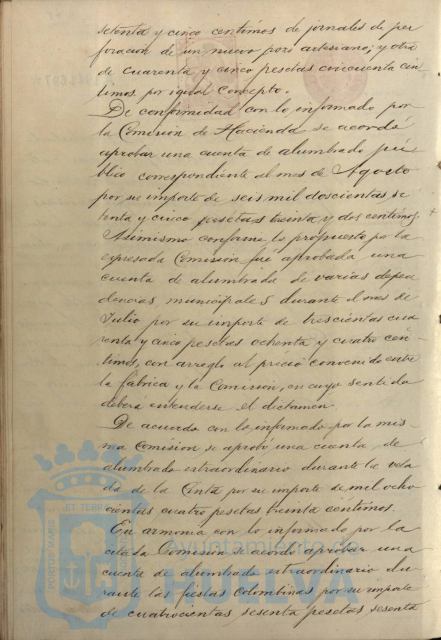 setenta y cinco centimos de jornales de per
foracion de un nuevo pozo artesiano; y otra
de cuarenta y cinco pesetas cincuenta cen
timos por igual concepto.
De conformidad con lo informado por
la Comision de Hacienda se acordó
aprobar una cuenta de alumbrado pú
blico correspondiente al mes de Agosto
por su importe de seis mil doscientas se
tenta y cinco pesetas treinta y dos centimos.
Asimismo conforme lo propuesto por la
expresada Comision fué aprobada una
cuenta de alumbrado de varias depen
dencias municipales durante el mes de
Julio por su importe de trescientas cua
renta y cinco pesetas ochenta y cuatro cen
timos, con arreglo al precio convenido entre
la fábrica y la Comision, en cuyo sentido
deberá entenderse el dictamen.
De acuerdo con lo informado por la mis
ma Comision se aprobó una cuenta de
alumbrado extraordinario durante la vela
da de la Cinta por su importe de mil ocho
cientas cuatro pesetas treinta centimos.
En armonia con lo informado por la
citada Comision se acordó aprobar una
cuenta de alumbrado extraordinario du
rante las fiestas Colombinas por su importe
de cuatrocientas sesenta pesetas sesenta
PORTUS MARIS ET TERRAE
Ayuntamiento de
HUELVA